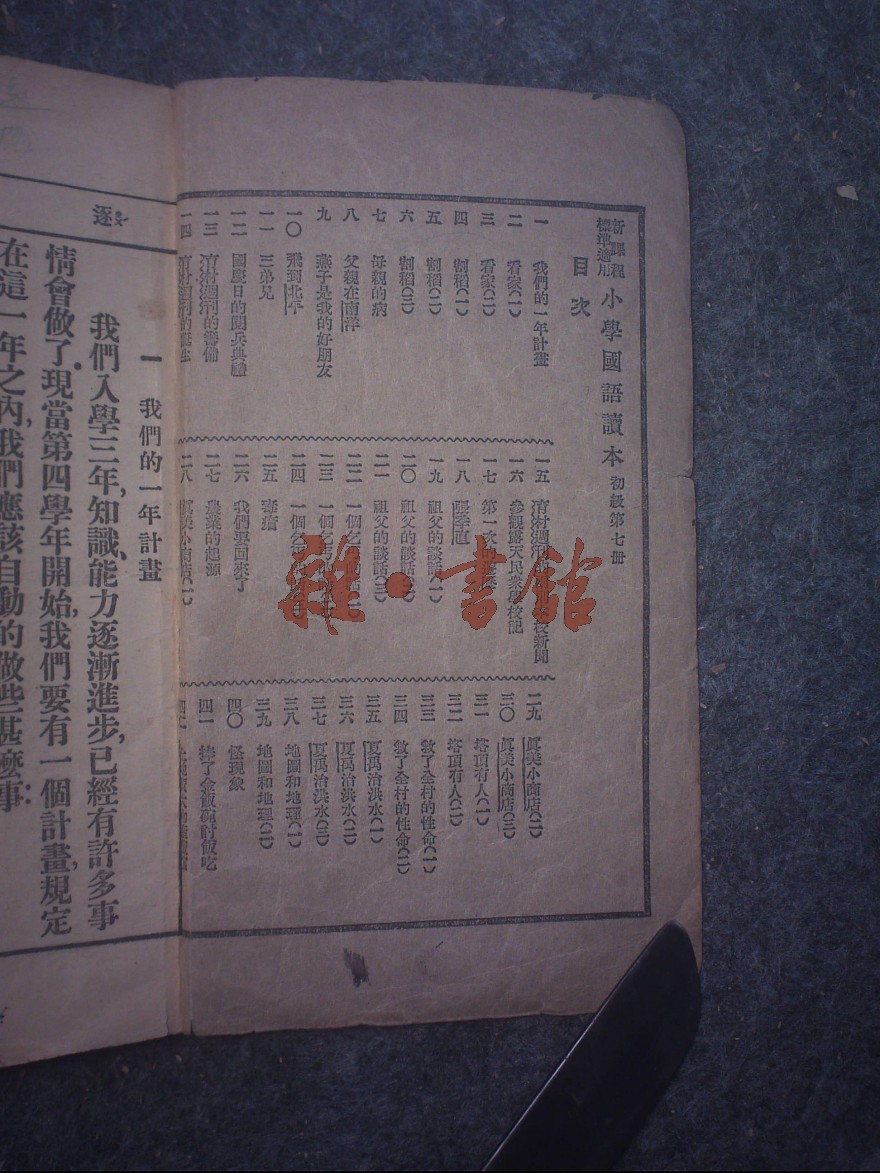 新課程標準適用 小學國語讀本 初級第七册
目次
一 我們的一年計畫
二 看家(一)
三 看家(二)
四 割稻(一)
五 割稻(二)
六 割稻(三)
七 母親的病
八 父親在南洋
九 燕子是我的好朋友
一〇 飛到北平
一一 三弟兄
一二 國慶日的閱兵典禮
一三 清射週刊的籌備
一四
一五
一六 參觀露天民衆學校記
一七 第一次
一八 張季直
一九 祖父的談話(一)
二〇 祖父的談話(二)
二一 祖父的談話(三)
二二 一個乞丐
二三 一個乞丐
二四 一個乞丐
二五 毒瘡
二六 我們要回來了
二七 農業的起源
二八 眞美小商店(一)
二九 眞美小商店(二)
三〇 眞美小商店(三)
三一 塔頂有人(一)
三二 塔頂有人(二)
三三 救了全村的性命(一)
三四 救了全村的性命(二)
三五 夏禹治洪水(一)
三六 夏禹治洪水(二)
三七 夏禹治洪水(三)
三八 地圖和地理(一)
三九 地圖和地理(二)
四〇 怪現象
四一 捧了金飯碗討飯吃
逐
一 我們的一年計畫
我們入學三年,知識能力逐漸進步,已經有許多事
情會做了。現當第四學年開始,我們要有一個計畫,規定
在這一年之內,我們應該自動的做些甚麼事:
雜·書館